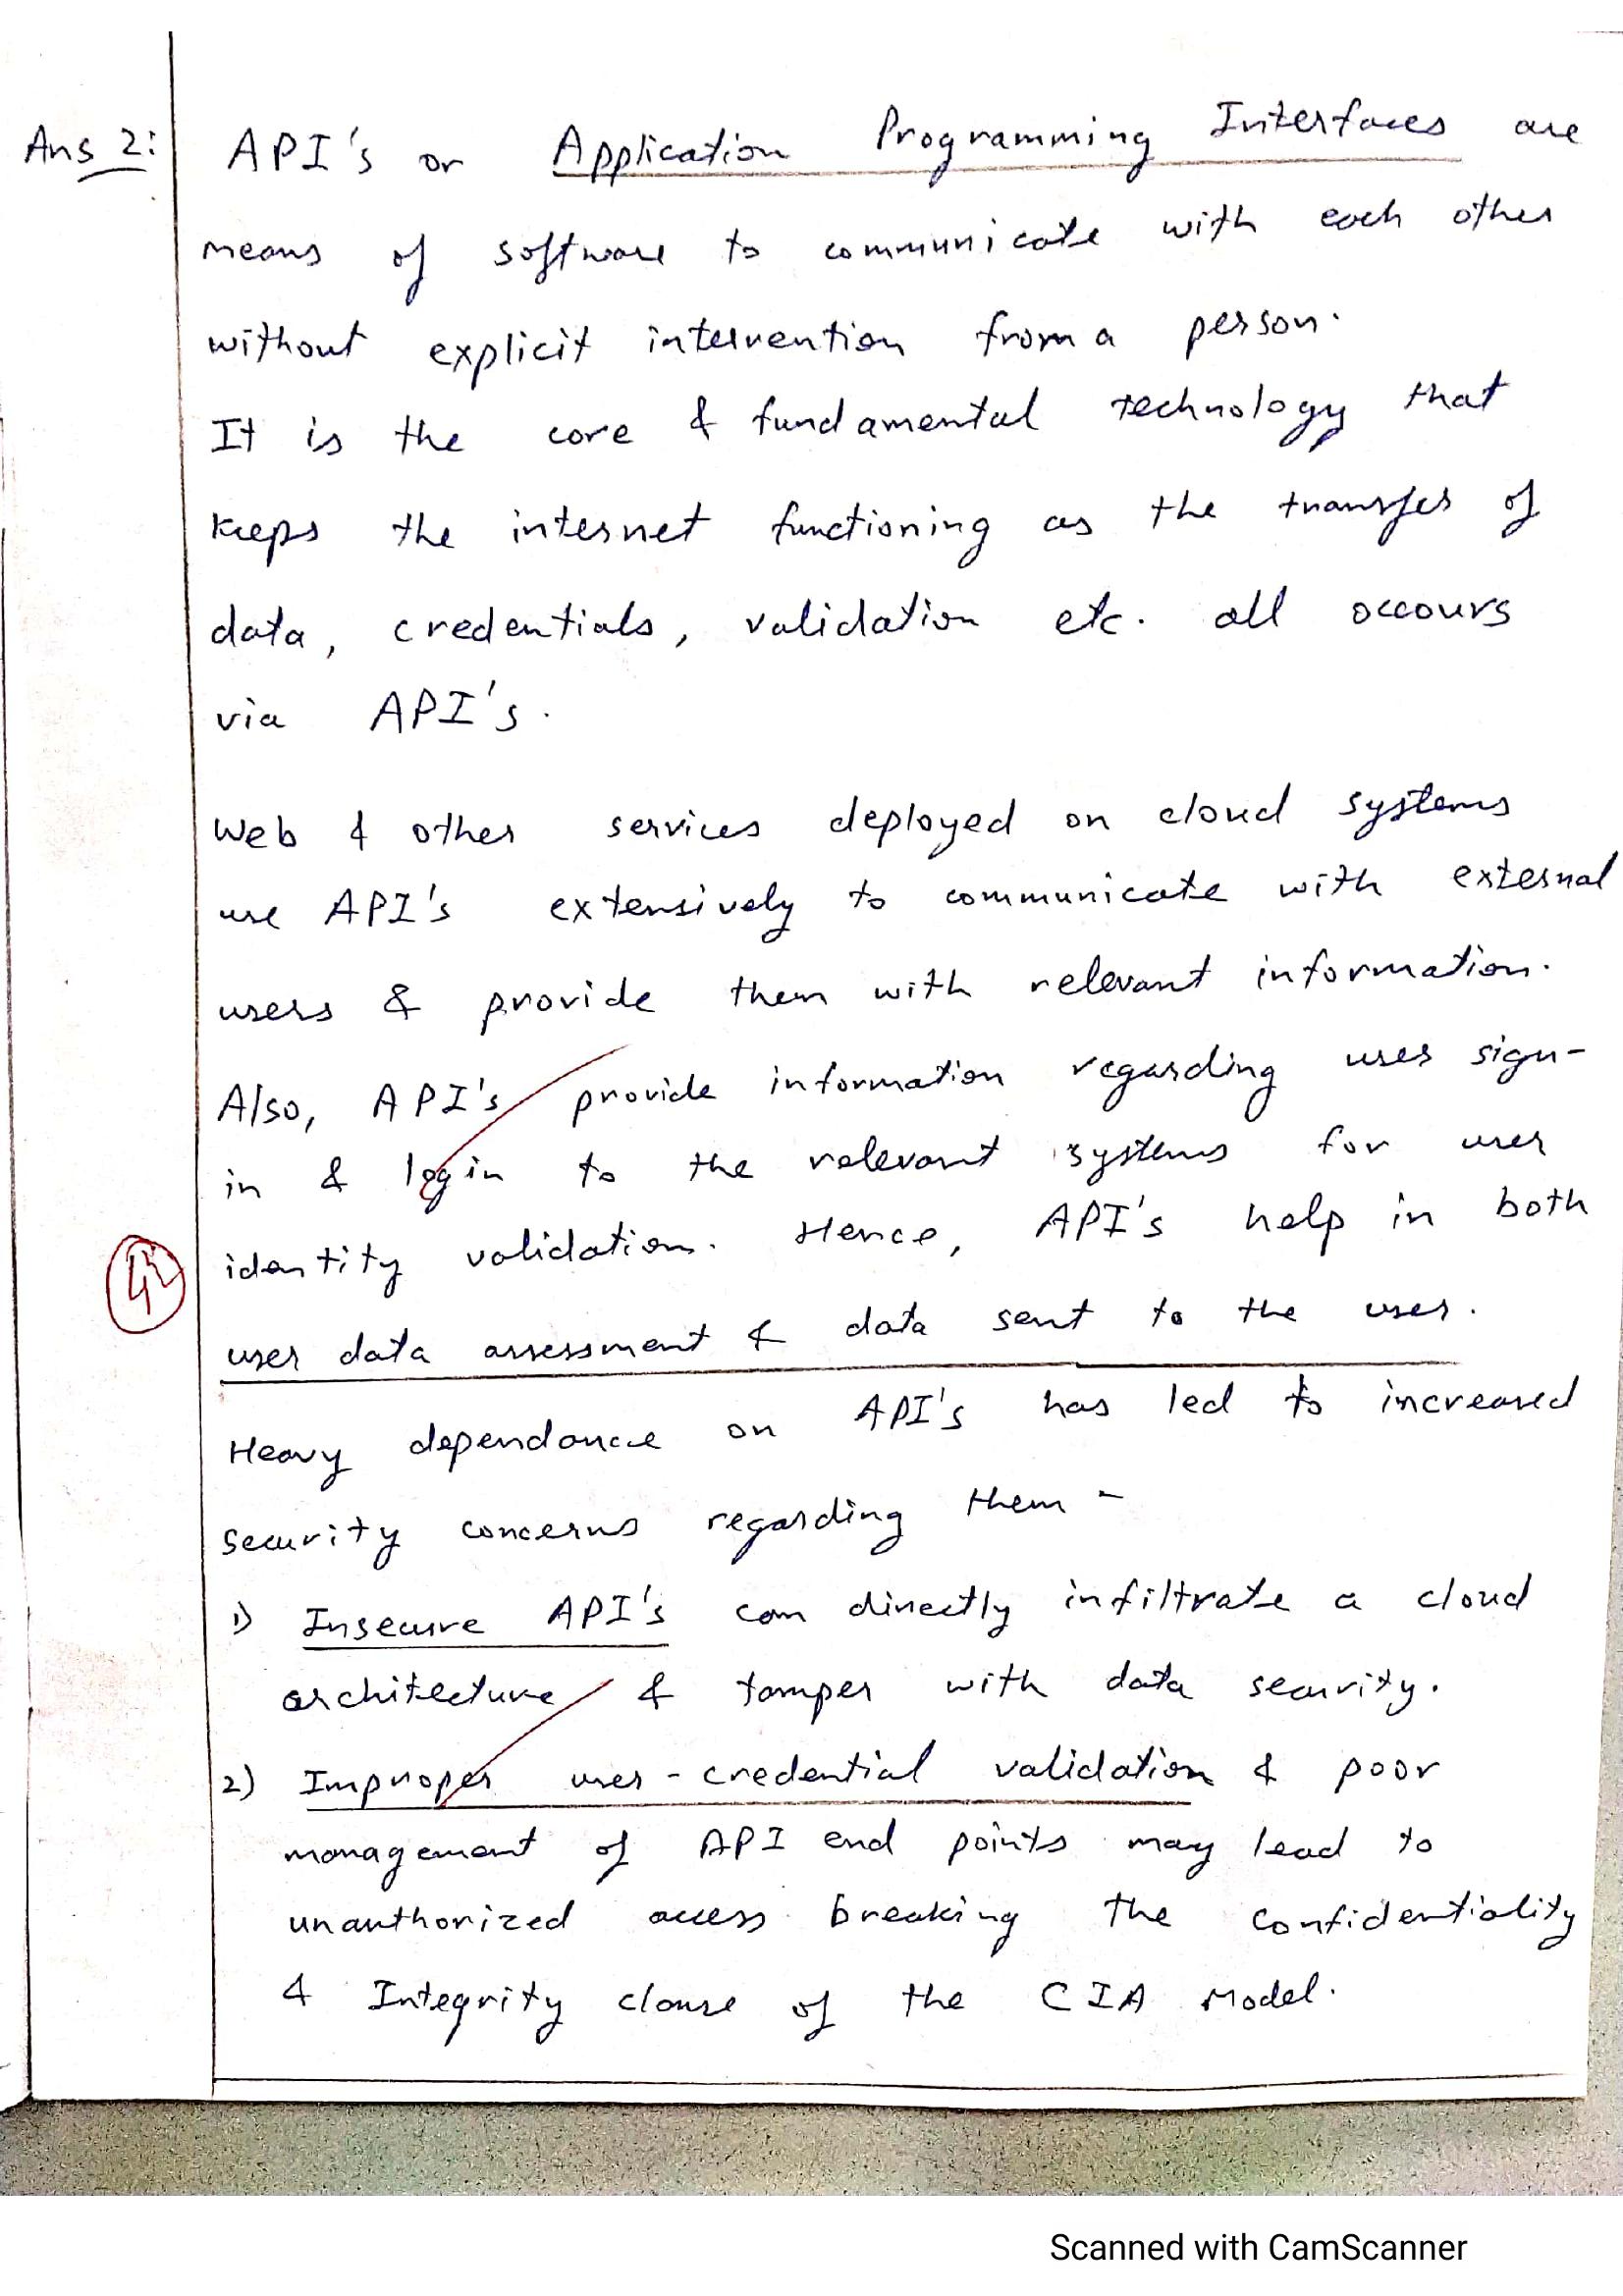 Ans 2: API's or Application Programming Interfaces are
means of software to communicate with each other
without explicit intervention from a person.
It is the core & fundamental technology that
keeps the internet functioning as the transfer of
data, credentials, validation etc. all occours
via API's.
Web & other services deployed on cloud systems
use API's extensively to communicate with external
users & provide them with relevant information.
Also, API's provide information regarding user sign-
in & login to the relevant systems for user
identity validation. Hence, API's help in both
user data assessment & data sent to the user.
Heavy dependance on API's has led to increased
security concerns regarding them -
1) Insecure API's can directly infiltrate a cloud
architecture & tamper with data security.
2) Improper user-credential validation & poor
management of API end points may lead to
unauthorized access breaking the confidentiality
& Integrity clause of the CIA Model.
Scanned with CamScanner